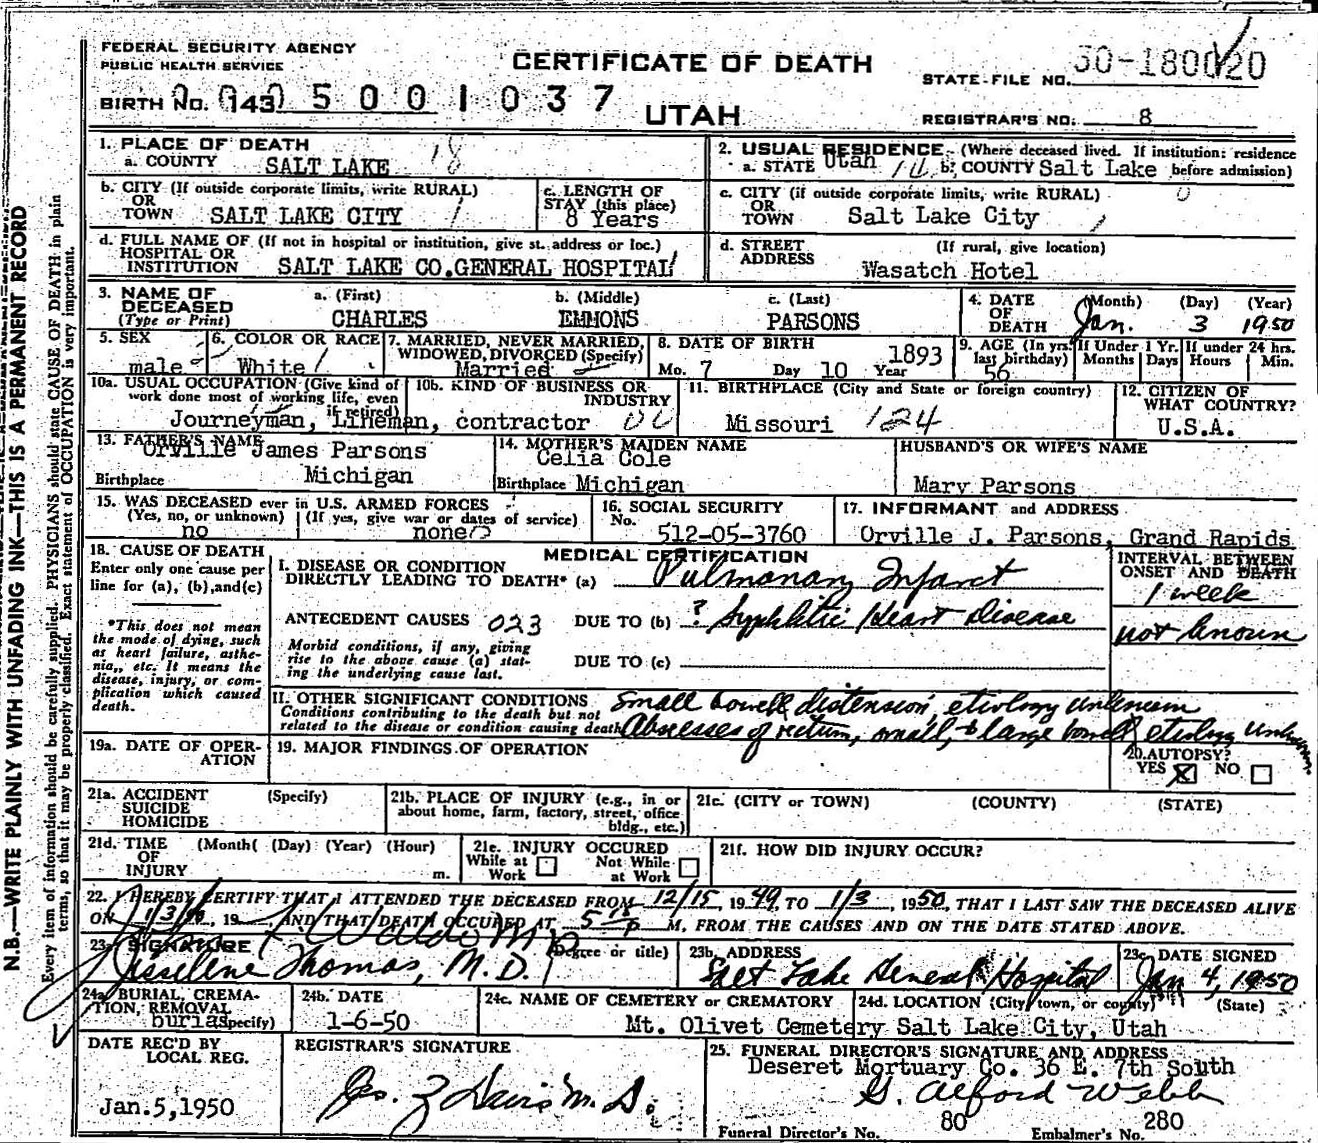 FEDERAL SECURITY AGENCY
PUBLIC HEALTH SERVICE
CERTIFICATE OF DEATH
STATE FILE NO.
BIRTH NO. 143 5 0 0 1 0 3 7
UTAH
REGISTRAR'S NO. 8
1. PLACE OF DEATH
a. COUNTY SALT LAKE 18
2. USUAL RESIDENCE (Where deceased lived. If institution: residence
a. STATE Utah b. COUNTY Salt Lake before admission)
b. CITY (If outside corporate limits, write RURAL)
OR
TOWN SALT LAKE CITY 1
c. LENGTH OF
STAY (this place)
8 Years
c. CITY (if outside corporate limits, write RURAL) 0
OR
TOWN Salt Lake City
d. FULL NAME OF (If not in hospital or institution, give st. address or loc.)
HOSPITAL OR
INSTITUTION SALT LAKE CO.GENERAL HOSPITAL
d. STREET (If rural, give location)
ADDRESS
Wasatch Hotel
3. NAME OF
DECEASED
(Type or Print)
a. (First)
CHARLES
b. (Middle)
EMMONS
c. (Last)
PARSONS
4. DATE
OF
DEATH
(Month) (Day) (Year)
Jan. 3 1950
5. SEX
male
6. COLOR OR RACE
White
7. MARRIED, NEVER MARRIED,
WIDOWED, DIVORCED (Specify)
Married
8. DATE OF BIRTH
Mo. 7 Day 10 Year 1893
9. AGE (In yrs.
last birthday)
56
If Under 1 Yr.
Months Days
If under 24 hrs.
Hours Min.
10a. USUAL OCCUPATION (Give kind of
work done most of working life, even
if retired)
Journeyman, Lineman, contractor
10b. KIND OF BUSINESS OR
INDUSTRY
11. BIRTHPLACE (City and State or foreign country)
Missouri 124
12. CITIZEN OF
WHAT COUNTRY?
U.S.A.
13. FATHER'S NAME
Orville James Parsons
Birthplace Michigan
14. MOTHER'S MAIDEN NAME
Celia Cole
Birthplace Michigan
HUSBAND'S OR WIFE'S NAME
Mary Parsons
15. WAS DECEASED ever in U.S. ARMED FORCES
(Yes, no, or unknown) (If yes, give war or dates of service)
no none
16. SOCIAL SECURITY
No.
512-05-3760
17. INFORMANT and ADDRESS
Orville J. Parsons, Grand Rapids
18. CAUSE OF DEATH
Enter only one cause per
line for (a), (b),and(c)
*This does not mean
the mode of dying, such
as heart failure, asthe-
nia,, etc. It means the
disease, injury, or com-
plication which caused
death.
MEDICAL CERTIFICATION
I. DISEASE OR CONDITION
DIRECTLY LEADING TO DEATH* (a) Pulmonary Infarct
ANTECEDENT CAUSES 023 DUE TO (b) ? Syphlitic Heart Disease
Morbid conditions, if any, giving
rise to the above cause (a) stat-
ing the underlying cause last.
DUE TO (c)
INTERVAL BETWEEN
ONSET AND DEATH
1 week
not known
II. OTHER SIGNIFICANT CONDITIONS
Conditions contributing to the death but not
related to the disease or condition causing death
Small bowell distension, etiology unknown
Abscesses of rectum, small, & large bowell etiology unknown
19a. DATE OF OPER-
ATION
19. MAJOR FINDINGS OF OPERATION
20. AUTOPSY?
YES X NO
21a. ACCIDENT (Specify)
SUICIDE
HOMICIDE
21b. PLACE OF INJURY (e.g., in or
about home, farm, factory, street, office
bldg., etc.)
21c. (CITY or TOWN) (COUNTY) (STATE)
21d. TIME (Month( (Day) (Year) (Hour)
OF
INJURY m.
21e. INJURY OCCURED
While at Work Not While at Work
21f. HOW DID INJURY OCCUR?
22. I HEREBY CERTIFY THAT I ATTENDED THE DECEASED FROM 12/15, 1949, TO 1/3, 1950, THAT I LAST SAW THE DECEASED ALIVE
ON 1/3/50, 19 AND THAT DEATH OCCURED AT 5 15 P M, FROM THE CAUSES AND ON THE DATE STATED ABOVE.
23. SIGNATURE (Degree or title)
Thomas, M.D.
23b. ADDRESS
Salt Lake General Hospital
23c. DATE SIGNED
Jan 4, 1950
24a. BURIAL, CREMA-
TION, REMOVAL
burial (Specify)
24b. DATE
1-6-50
24c. NAME OF CEMETERY or CREMATORY
Mt. Olivet Cemetery
24d. LOCATION (City, town, or county) (State)
Salt Lake City, Utah
DATE REC'D BY
LOCAL REG.
Jan.5,1950
REGISTRAR'S SIGNATURE
Jos. Z Davis M.D.
25. FUNERAL DIRECTOR'S SIGNATURE AND ADDRESS
Deseret Mortuary Co. 36 E. 7th South
G. Alford Webb
Funeral Director's No. 80 Embalmer's No. 280
N.B.—WRITE PLAINLY WITH UNFADING INK—THIS IS A PERMANENT RECORD
Every item of information should be carefully supplied. PHYSICIANS should state CAUSE OF DEATH in plain
terms, so that it may be properly classified. Exact statement of OCCUPATION is very important.